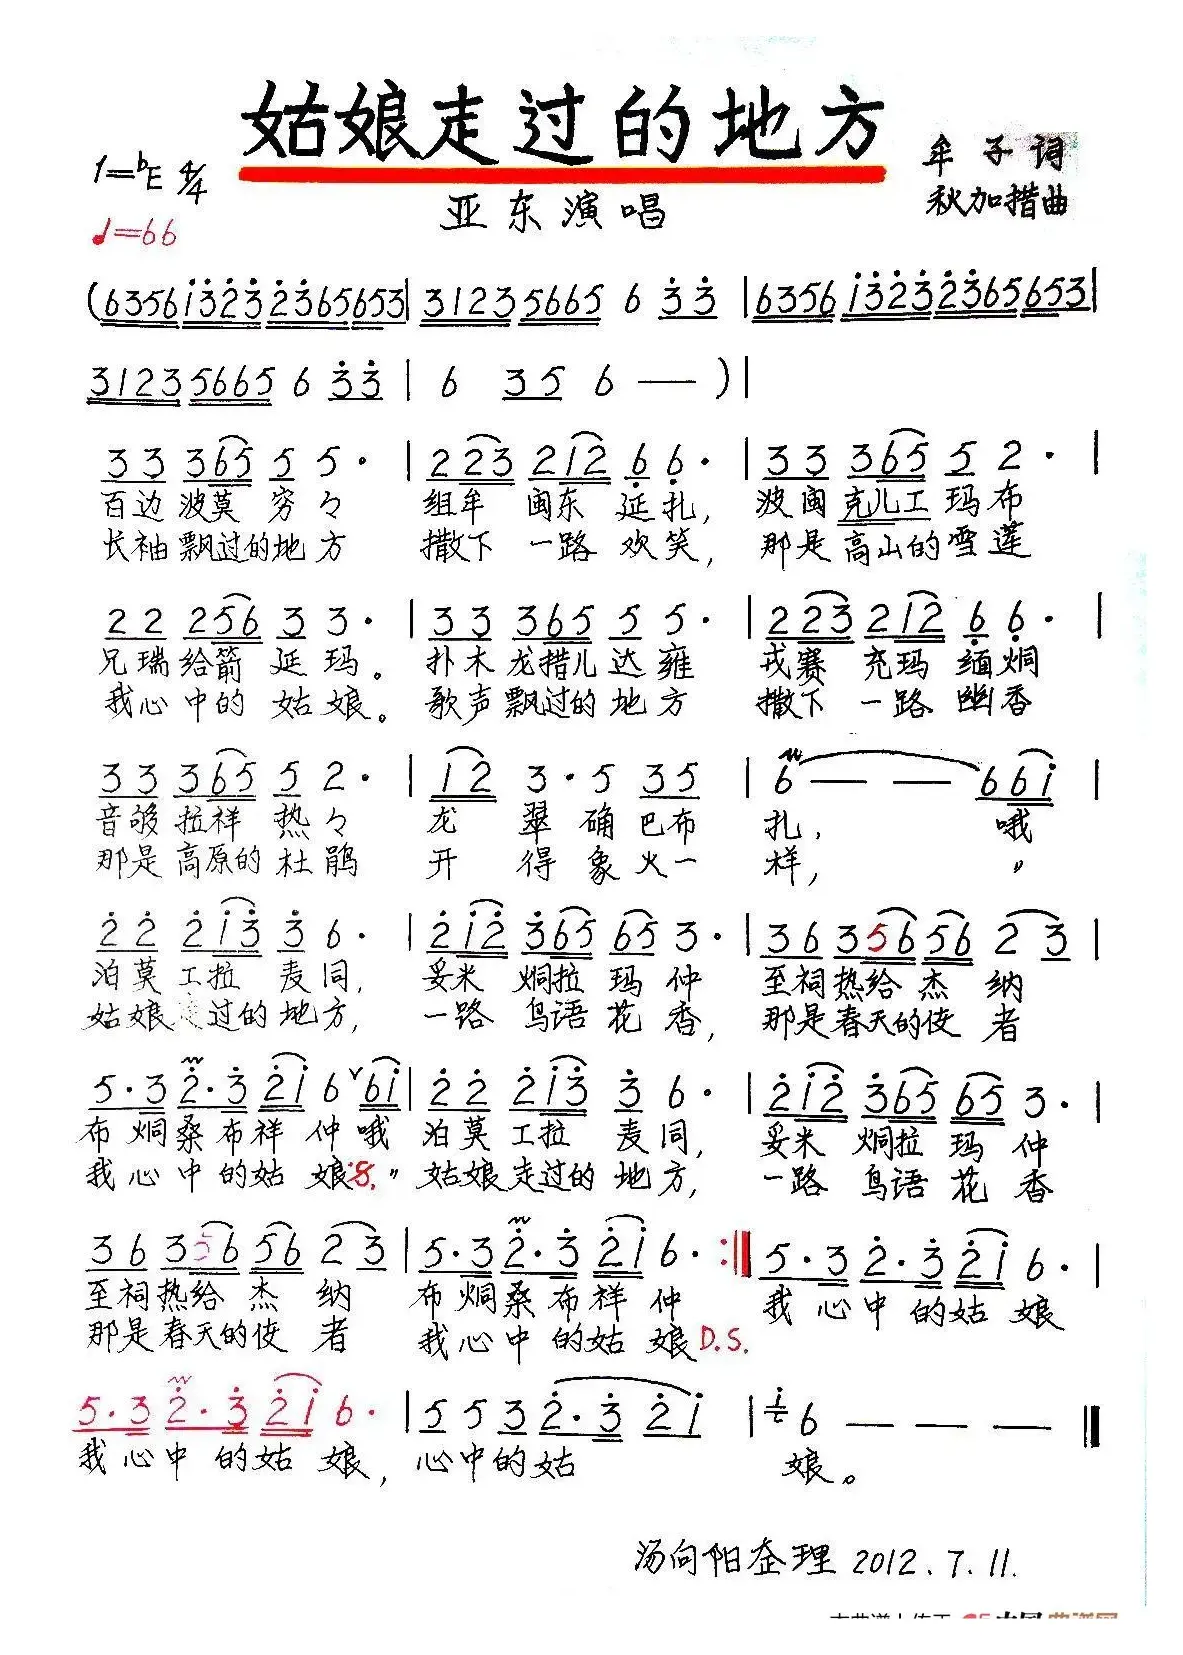 姑娘走过的地方
1=ᵇE 4/4
牟子词
♩=66
亚东演唱
秋加措曲
(6356i̇3̇2̇3̇ 2̇3̇65653|3123 5665 6 3̇3̇|6356 i̇3̇2̇3̇2̇365653|
3123 5665 6 3̇3̇|6 35 6 —)|
33 365 5 5·|223 212 6̣ 6̣·|33 365 5 2·|
百边波莫穷々 组牟闽东延扎, 波闽克儿工玛布
长袖飘过的地方 撒下一路欢笑, 那是高山的雪莲
22 256 3 3·|33 365 5 5·|223 212 6̣ 6̣·|
兄瑞给箭延玛。 扑木龙措儿达雍 戎赛充玛缅炯
我心中的姑娘。 歌声飘过的地方 撒下一路幽香
33 365 5 2·|12 3·5 35|6 — — 66i̇|
音够拉祥热々 龙翠确巴布 扎, 哦
那是高原的杜鹃 开得象火一 样, 。
2̇2̇ 2̇i̇3̇ 3̇ 6·|2̇i̇2̇ 3̇65 65 3·|36 356 56 23|
泊莫工拉麦同, 妥米炯拉玛仲 至祠热给杰纳
姑娘走过的地方, 一路鸟语花香, 那是春天的使者
5·3 2̇·3̇ 2̇i̇ 6ᵛ6i̇|2̇2̇ 2̇i̇3̇ 3̇ 6·|2̇i̇2̇ 3̇65 65 3·|
布炯桑布祥仲哦 泊莫工拉麦同, 妥米炯拉玛仲
我心中的姑娘 𝄋 。 姑娘走过的地方, 一路鸟语花香
36 356 56 23|5·3 2̇·3̇ 2̇i̇ 6·:‖5·3 2̇·3̇ 2̇i̇ 6·|
至祠热给杰纳 布炯桑布祥仲 我心中的姑娘
那是春天的使者 我心中的姑娘 D.S.
5·3 2̇·3̇ 2̇i̇ 6·|553 2̇·3̇ 2̇i̇|i̇ 6 — — —‖
我心中的姑娘, 心中的姑 娘。
汤向阳整理 2012.7.11.